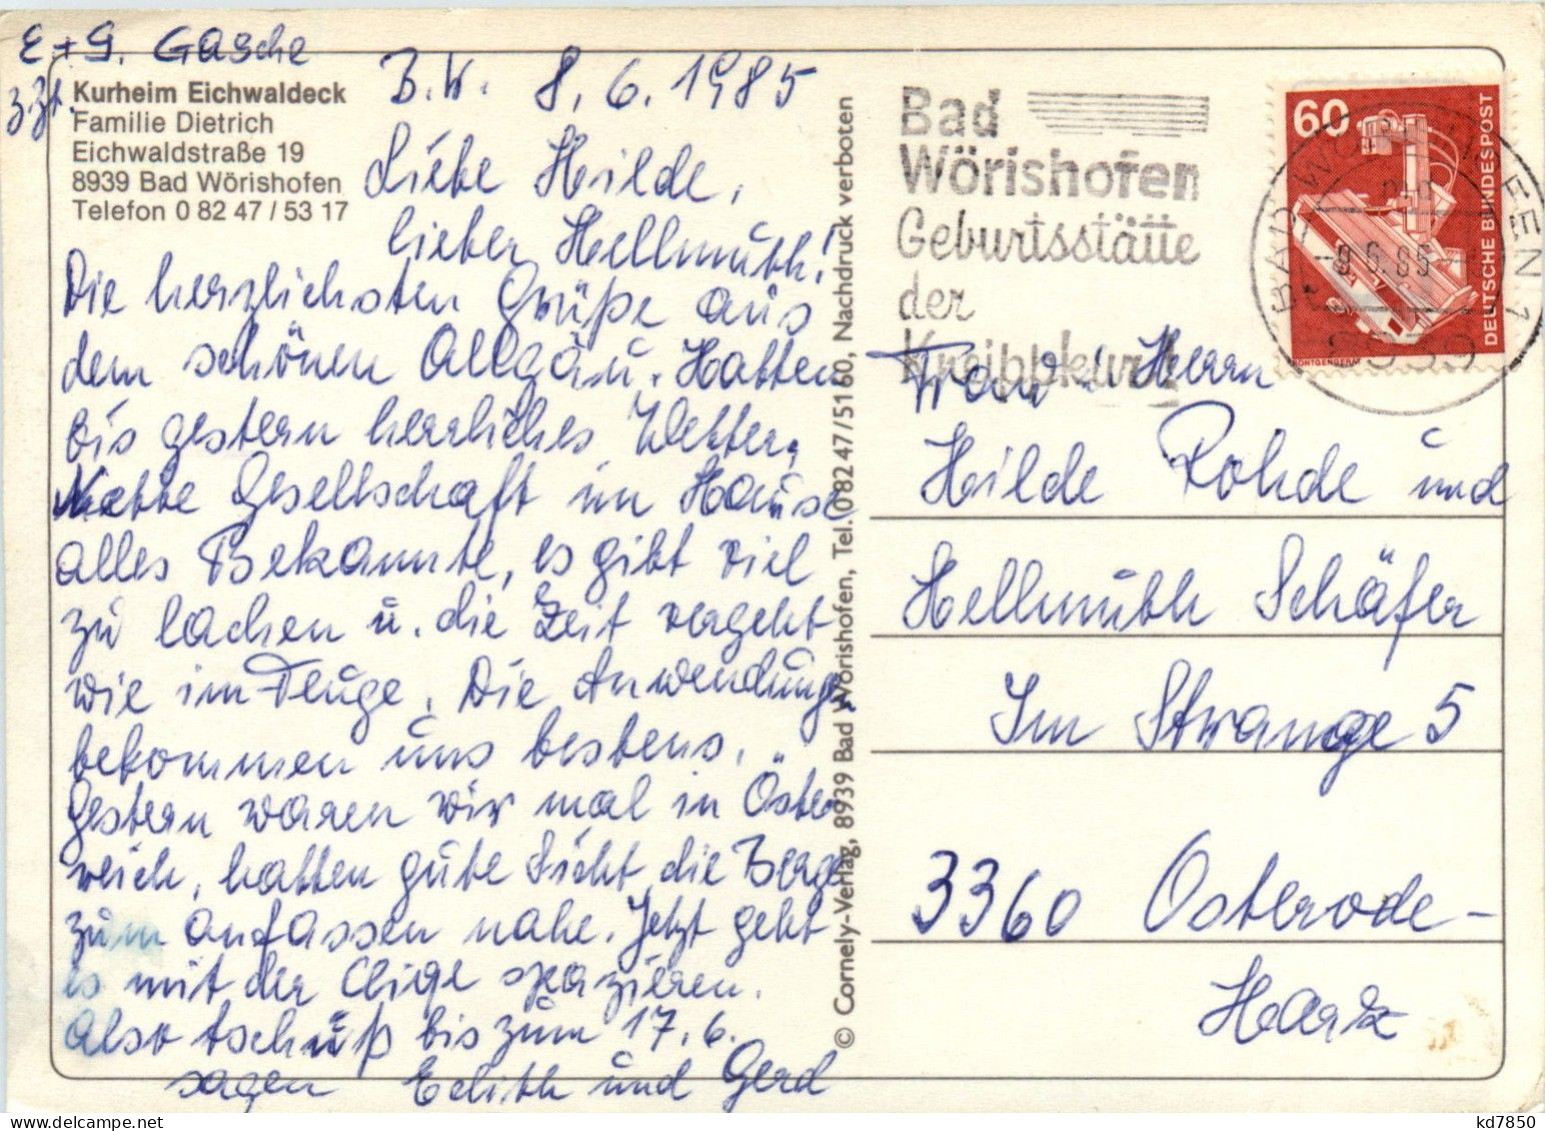 E + G. Gasche
z.Zt.
Kurheim Eichwaldeck
Familie Dietrich
Eichwaldstraße 19
8939 Bad Wörishofen
Telefon 0 82 47 / 53 17
B.W. 8.6.1985
Liebe Hilde,
lieber Hellmuth!
Die herzlichsten Grüße aus
dem schönen Allgäu. Hatten
bis gestern herrliches Wetter,
Nette Gesellschaft im Hause
alles Bekannte, es gibt viel
zu lachen u. die Zeit vergeht
wie im Fluge. Die Anwendungen
bekommen uns bestens.
Gestern waren wir mal in Öster
reich, hatten gute Sicht, die Berge
zum anfassen nahe. Jetzt geht
es mit der Clique spazieren.
Also tschüß bis zum 17.6.
sagen Edith und Gerd
© Cornely-Verlag, 8939 Bad Wörishofen, Tel. 0 82 47/51 60, Nachdruck verboten
Bad
Wörishofen
Geburtsstätte
der
Kneippkur
60
DEUTSCHE BUNDESPOST
RÖNTGENGERÄT
BAD WÖRISHOFEN 1
-9.6.85
8939
Frau u. Herrn
Hilde Rohde und
Hellmuth Schäfer
Im Strange 5
3360 Osterode-
Harz
www.delcampe.net
kd7850